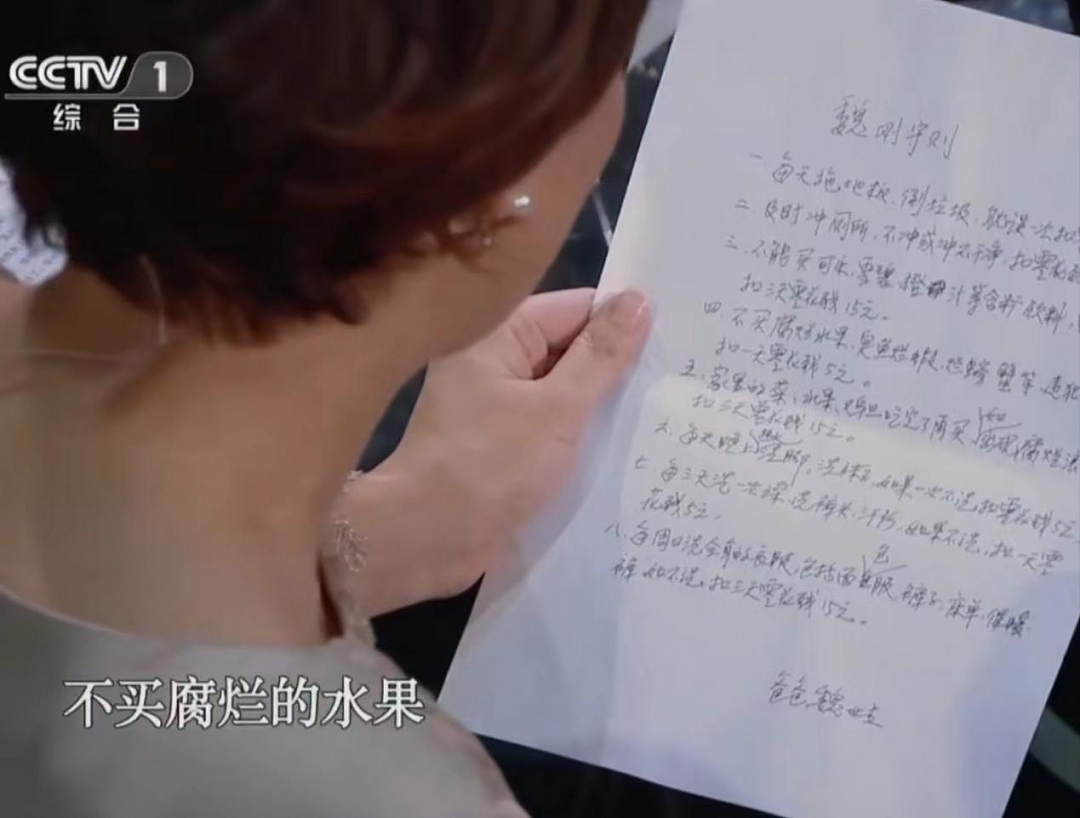 CCTV 1
综合
魏刚守则
一 每天拖地板、倒垃圾,耽误一次扣
二 及时冲厕所,不冲或冲不干净,扣零花
三、不能买可乐、雪碧、橙汁等含糖饮料,
扣三天零花钱15元。
四 不买腐烂水果、臭鱼烂虾、螃蟹等,违犯
扣一天零花钱5元。
五、家里的菜、水果、吃完了再买 如 发现腐烂
扣三天零花钱15元。
六、每天晚上洗脚,洗袜子,如果一次不洗,扣零花钱5元
七 每三天洗一次澡,洗裤头、汗衫,如果不洗,扣一天零
花钱5元,
八、每周日洗全身的衣服,包括 裤子、床单、保暖
裤,如不洗,扣三天零花钱15元。
爸爸魏世
不买腐烂的水果